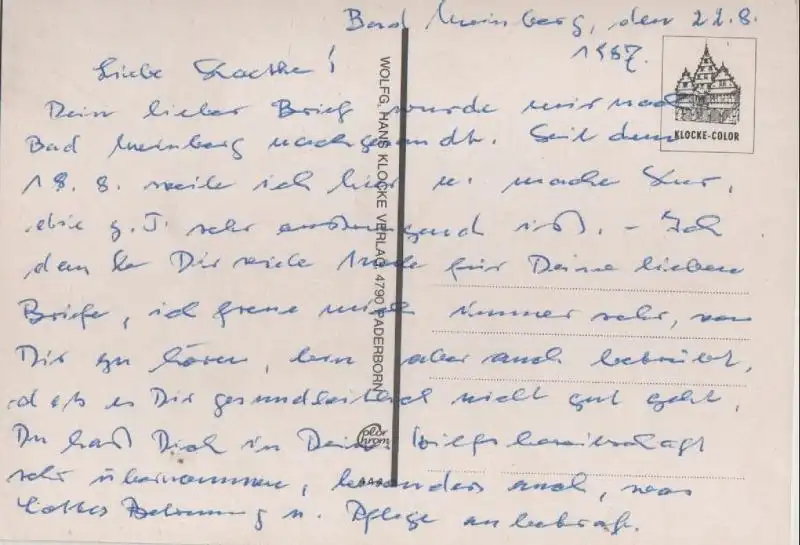 Bad Meinberg, den 22.8.
1987.
Liebe !
Dein lieber Brief wurde mir nach
Bad Meinberg nachgesandt. Seit dem
18. 8. weile ich hier u. mache Kur,
die z. T. sehr anstrengend ist. - Ich
danke Dir viele Male für Deine lieben
Briefe, ich freue mich immer sehr, von
Dir zu hören, bin aber auch betrübt,
daß es Dir gesundheitlich nicht gut geht.
Du hast Dich in Deiner
sehr übernommen, besonders auch, was
Betreuung u. Pflege anbetraf.
KLOCKE-COLOR
WOLFG. HANS KLOCKE VERLAG, 4790 PADERBORN
color
chrom